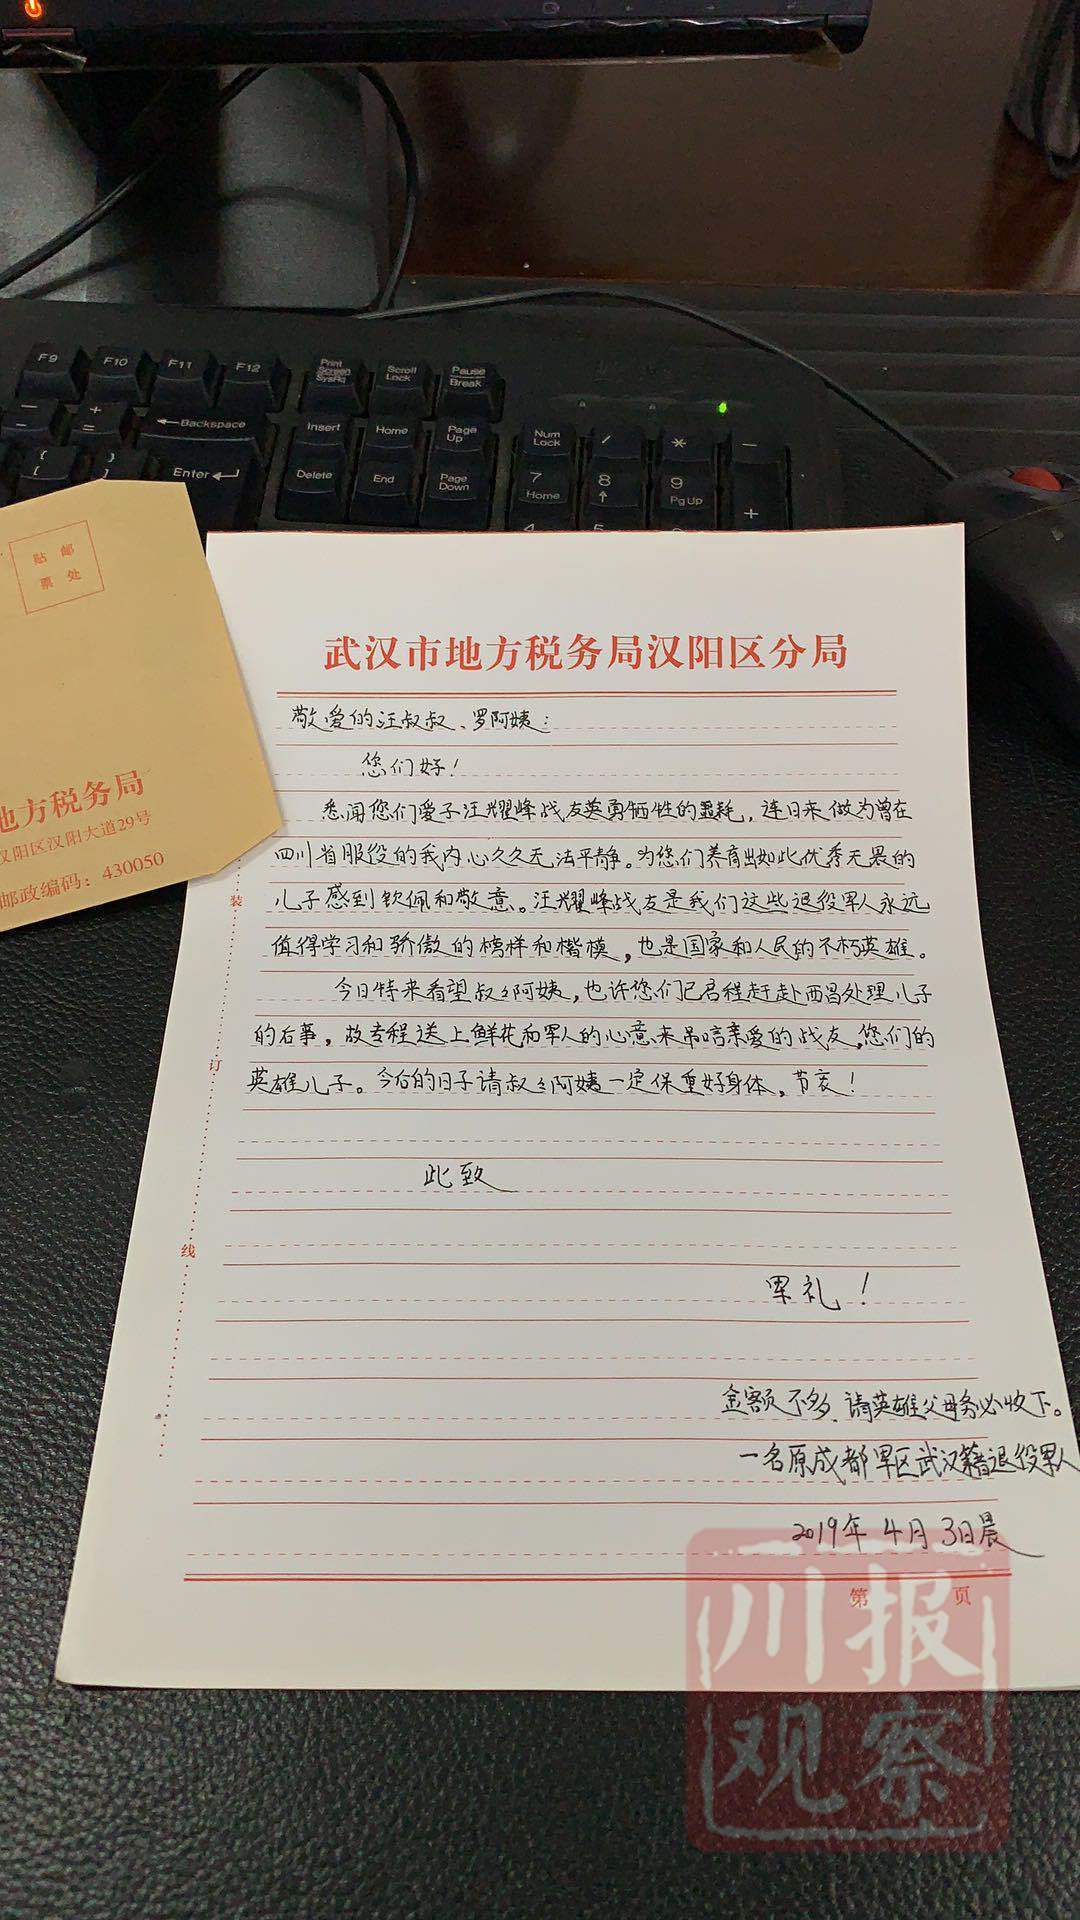 F9 F10 F11 F12 Print Screen SysRq Scroll Lock Pause Break
Backspace Insert Home Page Up Num Lock / * -
Enter Delete End Page Down 7 Home 8 9 PgUp +
贴 邮
票 处
地方税务局
汉阳区汉阳大道29号
邮政编码：430050
武汉市地方税务局汉阳区分局
敬爱的汪叔叔、罗阿姨：
您们好！
悉闻您们爱子汪耀峰战友英勇牺牲的噩耗，连日来做为曾在
四川省服役的我内心久久无法平静。为您们养育出如此优秀无畏的
儿子感到钦佩和敬意。汪耀峰战友是我们这些退役军人永远
值得学习和骄傲的榜样和楷模，也是国家和人民的不朽英雄。
今日特来看望叔々阿姨，也许您们已启程赶赴西昌处理儿子
的后事，故专程送上鲜花和军人的心意来吊唁亲爱的战友，您们的
英雄儿子。今后的日子请叔々阿姨一定保重好身体，节哀！
此致
军礼！
金额不多，请英雄父母务必收下。
一名原成都军区武汉籍退役军人
2019年4月3日晨
装
订
线
第 页
川报
观察